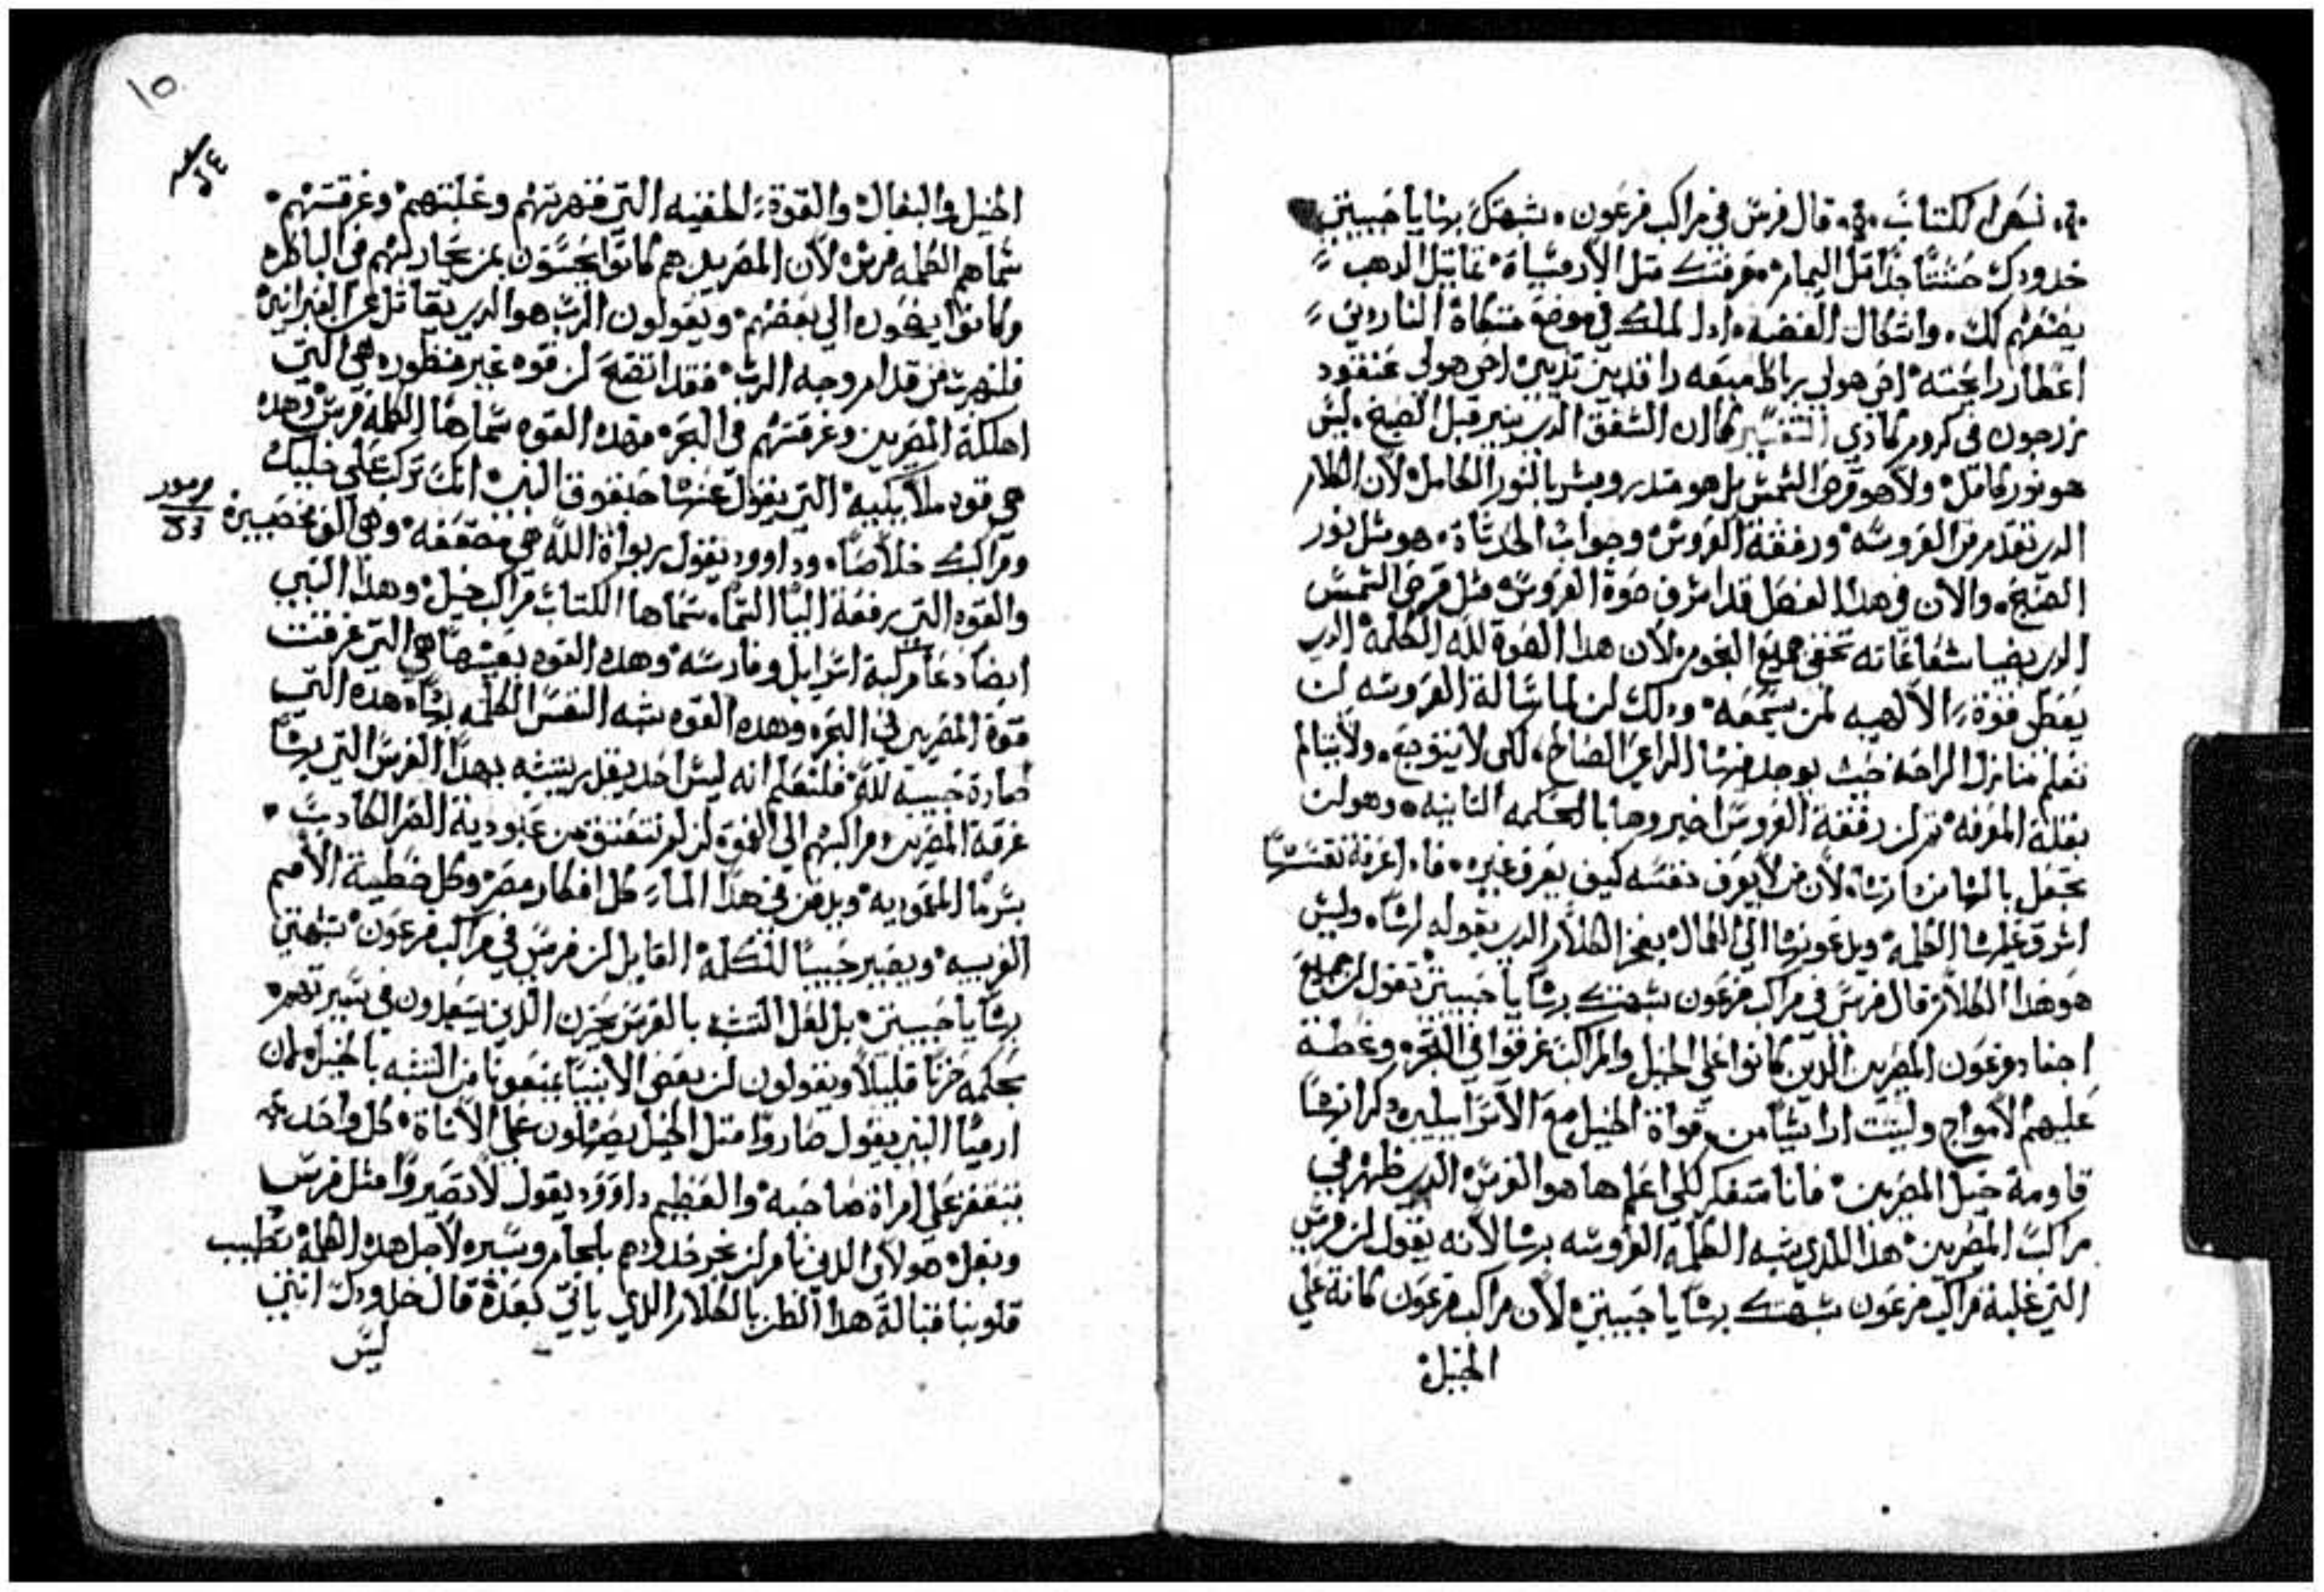 نص الكتاب قال فرس في مراكب فرعون شبهتك بها يا حبيبتي
خدودك حسنتا جدا مثل اليمام عرفتك مثل الاردمشاة تماتيل الدهب
يصنعهم لك واشكال الفضه ادا الملك في موضع متكاة الناردين
اعطا رايحته اخي هولي رباط ميعه راقد بين تديي اخي هولي عنقود
زرجون في كروم كادي التفسير كما ان الشفق الدي ينير قبل الصبح ليس
هو نور كامل ولا هو قرص الشمس بل هو مندر ومبشر بالنور الكامل لان الكلام
الدي تقدم من العروسه ورفقة العروس وجواب الحدثاة هو مثل نور
الصبح والان في هذا الفصل قد اشرق ضوة العروس مثل قرص الشمس
الدي بضيا شعاعاته تخفي جميع النجوم لان هذا القوة لله الكلمة الدي
يعطي قوة الالهيه لمن يسمعه ودلك ان لما سالة العروسه ان
تعلم منازل الراحه حيث يوجد فيها الراعي الصالح لكي لا يتوجع ولا يتالم
بقلة المعرفه ثم ان رفقة العروس اخبروها بالحكمه التانيه وهو ان
تجعل بالها من دارتها لان من لا يعرف نفسه كيف يعرف غيره فا اعرفة نفسها
اشرق عليها الكلمة ويدعونها الي الكمال بفخر الكلام الدي يقوله لها وليس
هو هذا الكلام قال فرس في مراكب فرعون شبهتك بها يا حبيبتي تقول ان جميع
اجناد فرعون المصريين الذين كانوا علي الخيل والمراكب غرقوا في البحر وغطة
عليهم الامواج وليست ارا شيا من قواة الخيل مع الاسراييليين دكر انها
قاومة خيل المصريين فانا متفكر لكي اعلم ما هو الفرس الدي ظهر في
مراكب المصريين هذا الذي شبه الكلمه العروسه بها لانه يقول ان فرس
التي غلبة مراكب فرعون شبهتك بها يا حبيبتي لان مراكب فرعون كانة علي
الخيل
١٥
الخيل والبغال والقوة الخفيه التي قهرتهم وغلبتهم وغرقتهم
سماهم الكلمه فرس لان المصريين هم كانوا يحسون بمن يحاربهم في الباطن
وكانوا يضون الي بعضهم ويقولون الرب هو الدي يقاتل عن العبرانيين
فلنهرب من قدام وجه الرب فقد اتضح ان قوه غير منظوره هي التي
اهلكة المصريين وغرقتهم في البحر وهذه القوه سماها الكلمه فرس وهذه
هي قوه ملايكيه التي يقول عنها حبقوق النبي انك تركب علي خيلك
ومراكبك خلاصا وداوود يقول ربواة الله هي مضعفه وهي الوف مخصبين
مزمور
والقوه التي رفعة اليا السما سماها الكتاب مراكب خيل وهذا النبي
ايضا دعا مركبة اسراييل وفارسه وهذه القوه بعينها هي التي غرقت
قوة المصريين في البحر وهذه القوه شبه النفس الكلمه بها هذه التي
صارة حبيبه لله فلنعلم انه ليس احد يقدر يتشبه بهذا الفرس التي بها
غرقة المصريين ومراكبهم الي القوة ان لم نتعتق من عبودية الضد الكادب
بسر ما المعموديه ويدفن في هذا الما كل افكار مصر وكل خطية الامم
الغريبه ويصير حبيبا للكلة القايل ان فرس في مراكب فرعون شبهتي
بها يا حبيبتي بل لعل التشبه بالفرس يحزن الذين يتعدون في سيرتهم
بحكمه حزنا قليلا ويقولون ان بعض الانبيا يمنعونا من التشبه بالخيل لان
ارميا النبي يقول صاروا متل الخيل يصهلون علي الاناة كل واحد
يتقفز علي امراة صاحبه والعظيم داوود يقول لا تصيروا مثل فرس
وبغل هولاي الدين نامر ان نجر خدودهم بلجام وسيره لاجل هده الكلمة نطيب
قلوبنا قبالة هذا الظن بالكلام الذي ياتي بعدة قال خدودك انتي
ليس